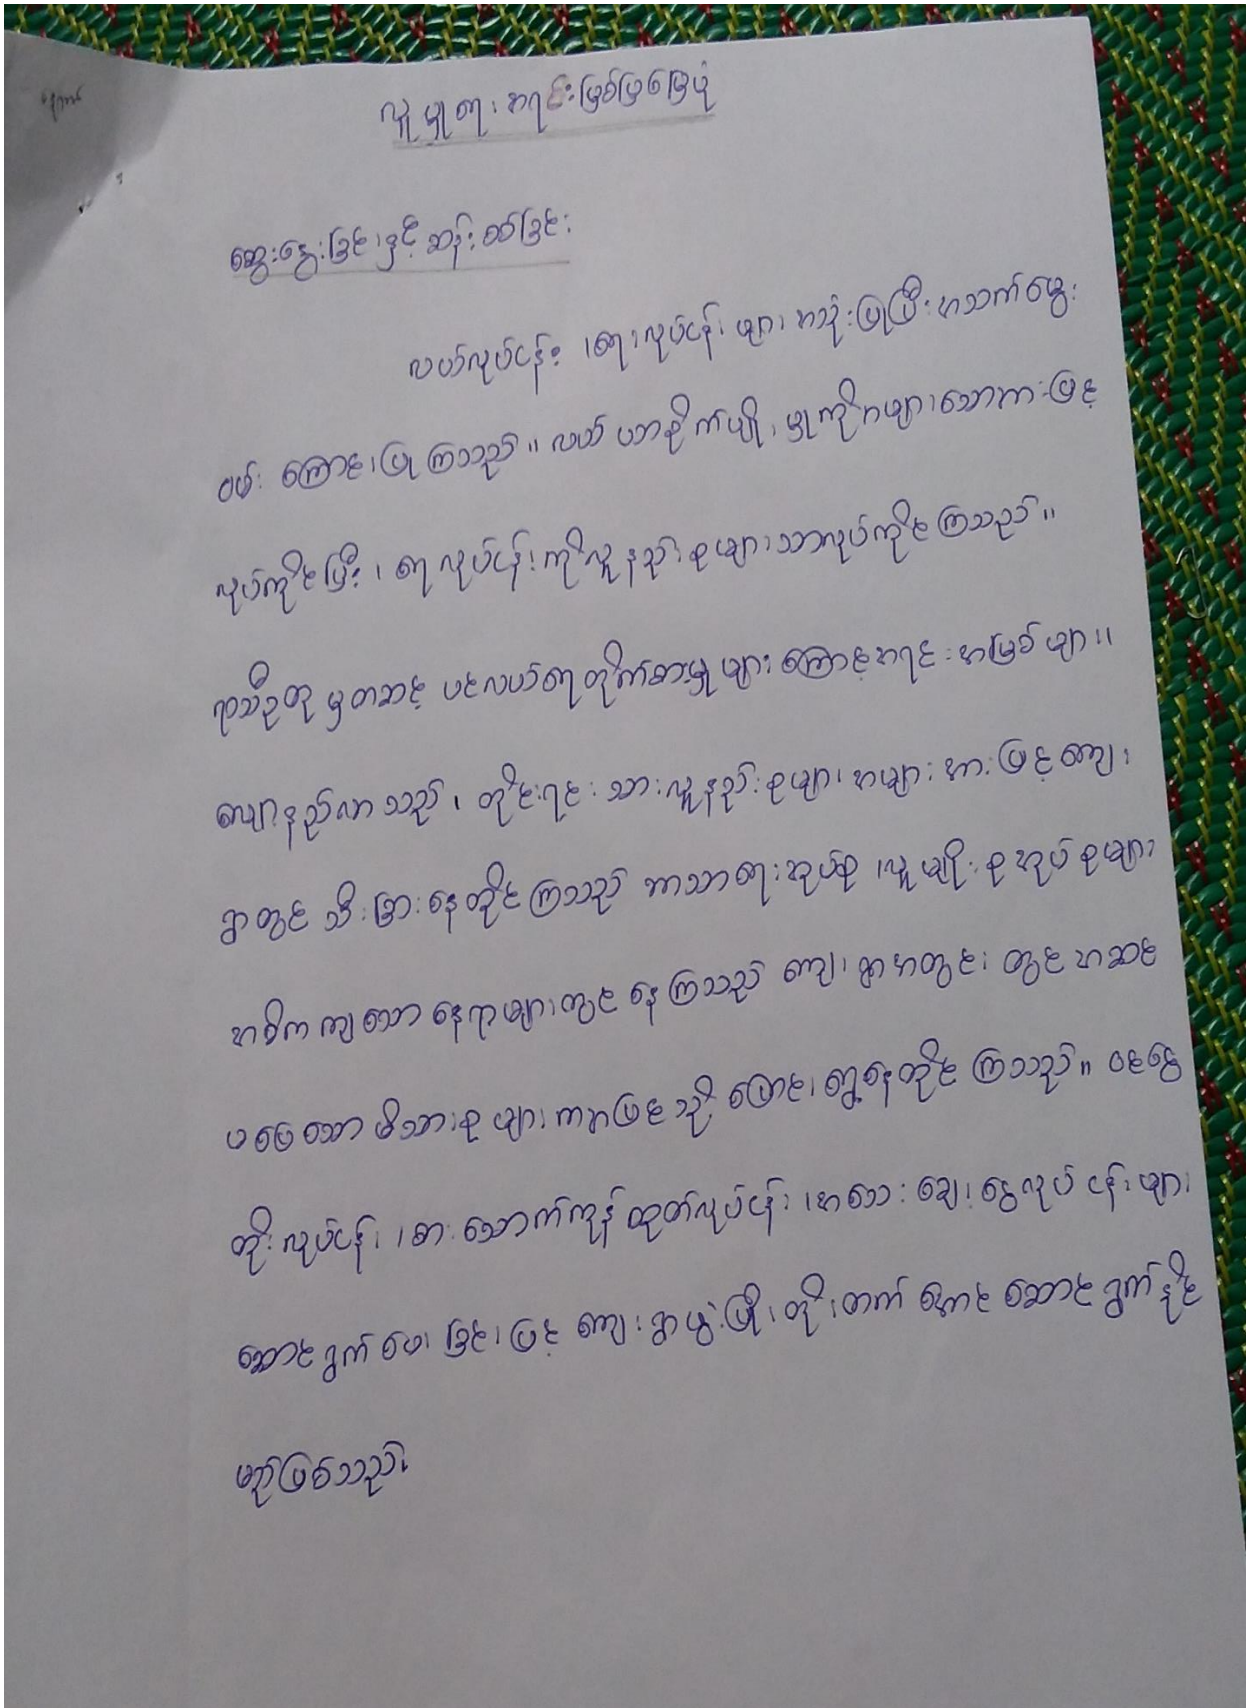 လူမှုရေးအရင်းမြစ်မြေပုံ
ဆွေးနွေးခြင်းနှင့် ဆန်းစစ်ခြင်း
လယ်လုပ်ငန်း၊ ရေလုပ်ငန်းများ အသုံးပြုပြီး အသက်မွေး
ဝမ်းကျောင်းပြုကြသည်။ လယ် ပဘာစိုက်ပျိုးမှုကို ဗမာများသောအားဖြင့်
လုပ်ကိုင်ပြီး၊ ရေလုပ်ငန်းကိုလူနည်းစုများသာလုပ်ကိုင်ကြသည်။
ရာသီဥတုမှတဆင့် ပင်လယ်ရေတိုက်စားမှုများကြောင့်အရင်းအမြစ်များ
လျော့နည်းလာသည်၊ တိုင်းရင်းသားလူနည်းစုများ အများအားဖြင့်ကျေး
ရွာတွင် သီးခြားနေထိုင်ကြသည် ဘာသာရေးအုပ်စု၊ လူမျိုးစုအုပ်စုများ
အဓိကကျသော နေရာများတွင် နေကြသည် ကျေးရွာအတွင်းတွင် အဆင်
မပြေသော မိသားစုများ ကမ္ဘာပြင်သို့ ပြောင်းရွှေ့နေထိုင်ကြသည်။ ဝင်ငွေ
တိုးလုပ်ငန်း၊ စားသောက်ကုန်ထုတ်လုပ်ငန်း၊ အသေးချေးငွေလုပ်ငန်းများ
ဆောင်ရွက်ပေးခြင်းဖြင့် ကျေးရွာဖွံ့ဖြိုးတိုးတက်အောင် ဆောင်ရွက်နိုင်
မည်ဖြစ်သည်။